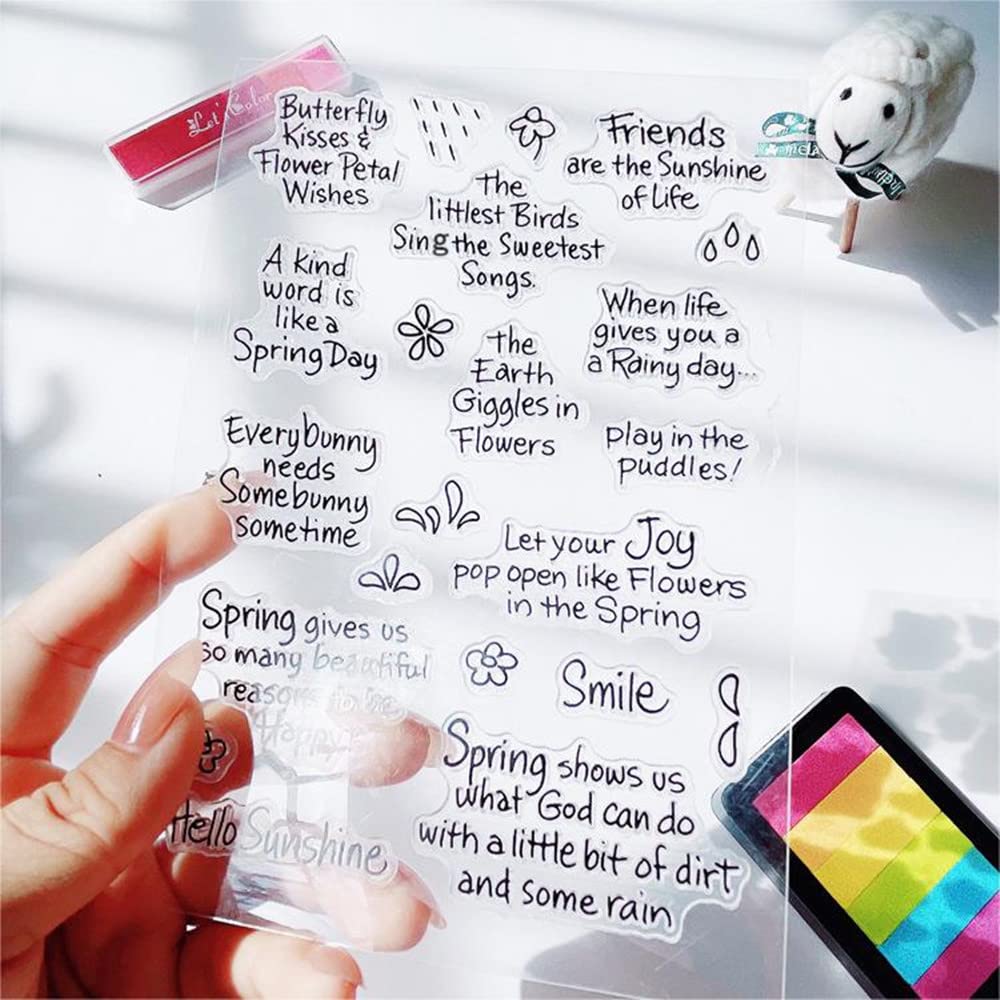 Let's Color
Butterfly
Kisses &
Flower Petal
Wishes
Friends
are the Sunshine
of Life
The
littlest Birds
Sing the Sweetest
Songs.
A kind
word is
like a
Spring Day
When life
gives you a
a Rainy day...
the
Earth
Giggles in
Flowers
Play in the
puddles!
Everybunny
needs
Somebunny
sometime
Let your Joy
pop open like Flowers
in the Spring
Spring gives us
so many beautiful
reasons to be
Happy
Smile
Spring shows us
what God can do
with a little bit of dirt
and some rain
Hello Sunshine